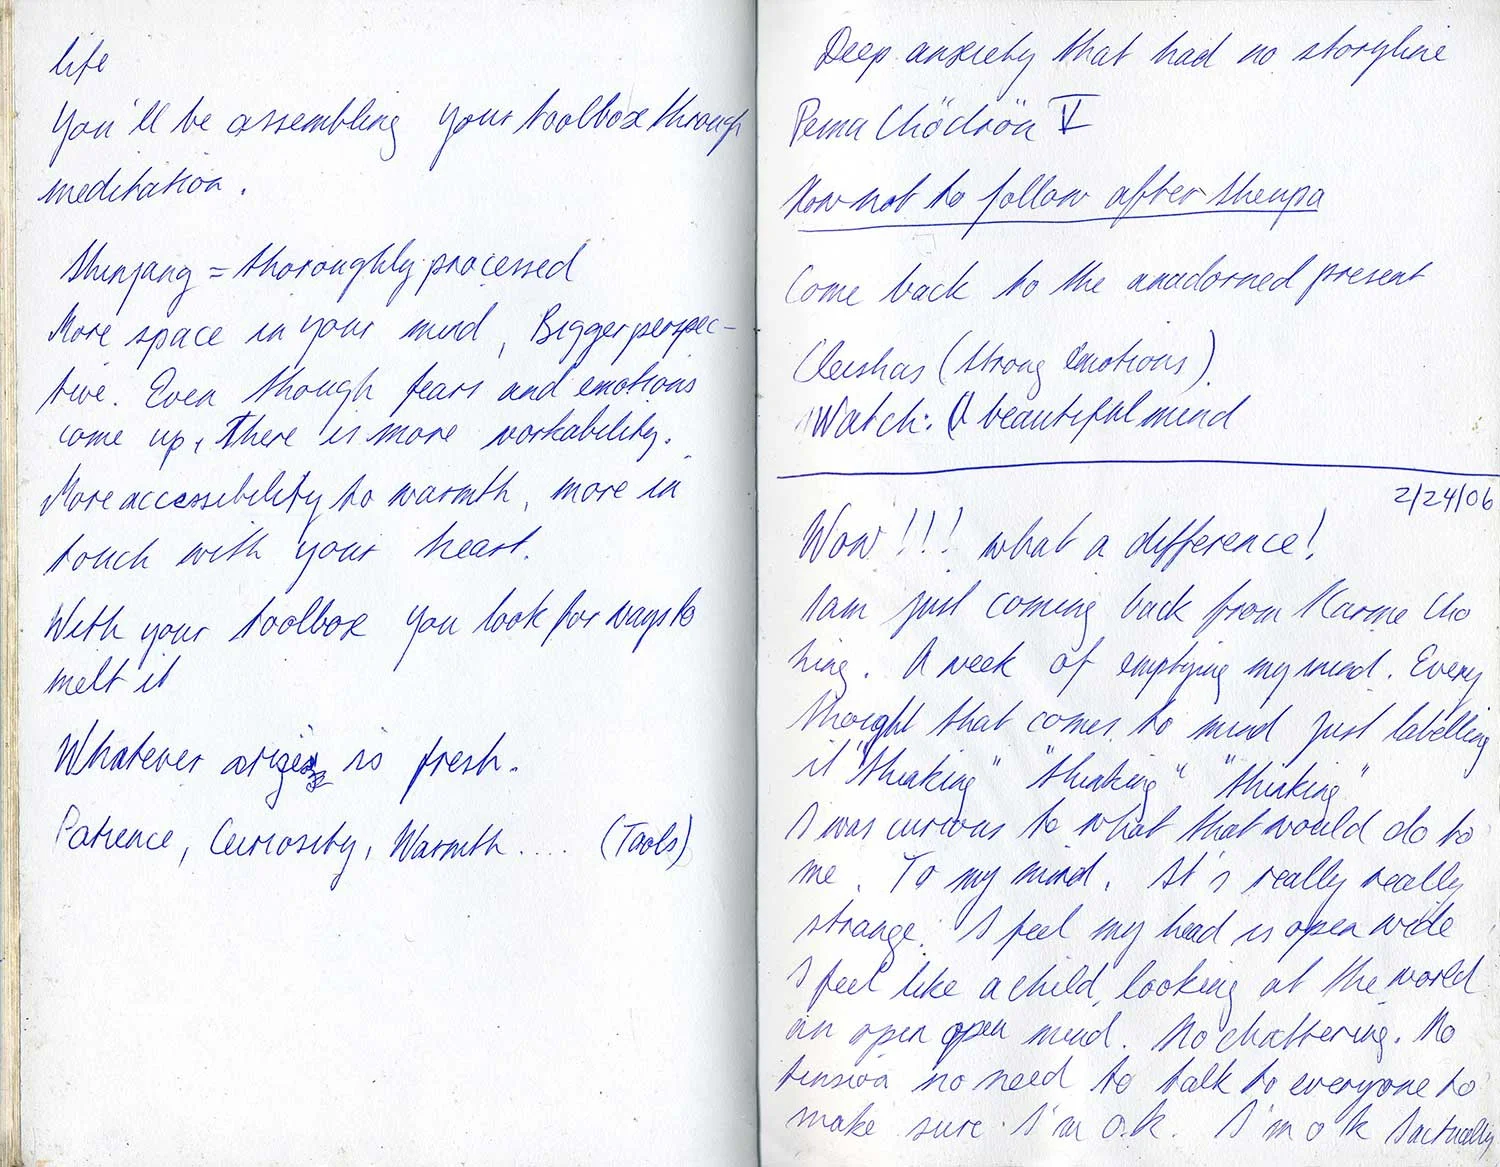 life
You'll be assembling your toolbox through
meditation.
Shinjang = thoroughly processed
More space in your mind, Bigger perspec-
tive. Even though fears and emotions
come up, There is more workability.
More accessibility to warmth, more in
touch with your heart.
With your toolbox you look for ways to
melt it
Whatever arises is fresh.
Patience, Curiosity, Warmth.... (Tools)
Deep anxiety that had no storyline
Pema Chödrön V
How not to follow after shenpa
Come back to the unadorned present
Cleshas (strong emotions).
Watch: A beautiful mind
2/24/06
Wow!!! what a difference!
I am just coming back from Karme Chö
ling. A week of emptying my mind. Every
thought that comes to mind just labelling
it "thinking" "thinking" "thinking"
I was curious to what that would do to
me. To my mind. It's really really
strange. I feel my head is open wide
I feel like a child, looking at the world
an open open mind. No chattering. No
tension no need to talk to everyone to
make sure I'm o.k. I'm ok I actually